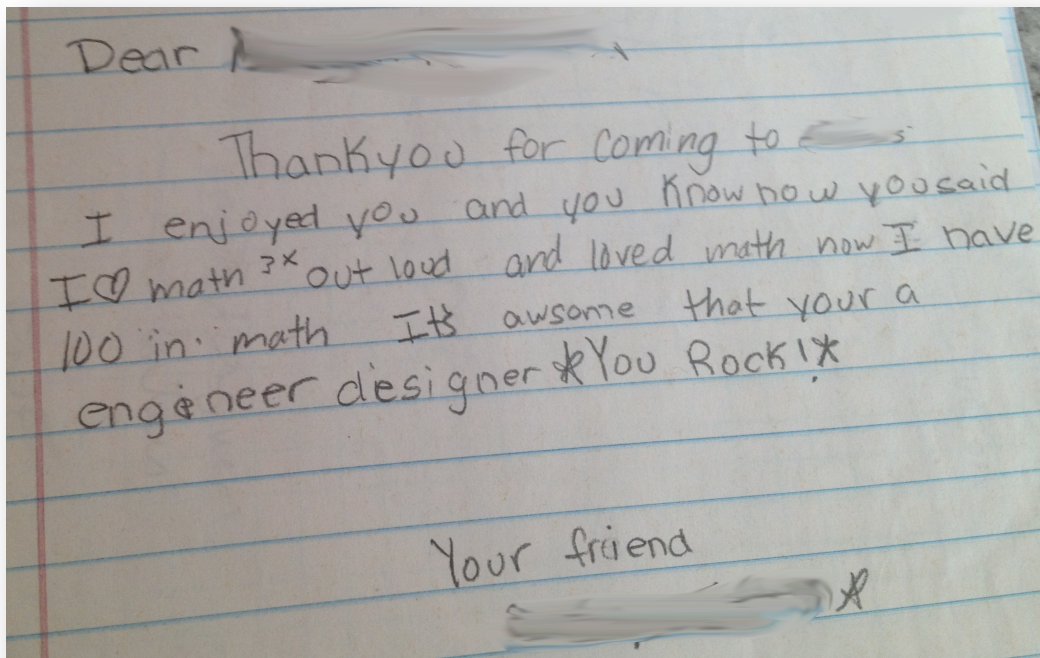 Dear
Thankyou for Coming to
I enjoyed you and you Know how you said
I ♡ math 3x out loud and loved math now I have
100 in math It's awsome that your a
engineer designer *You Rock!*
Your friend